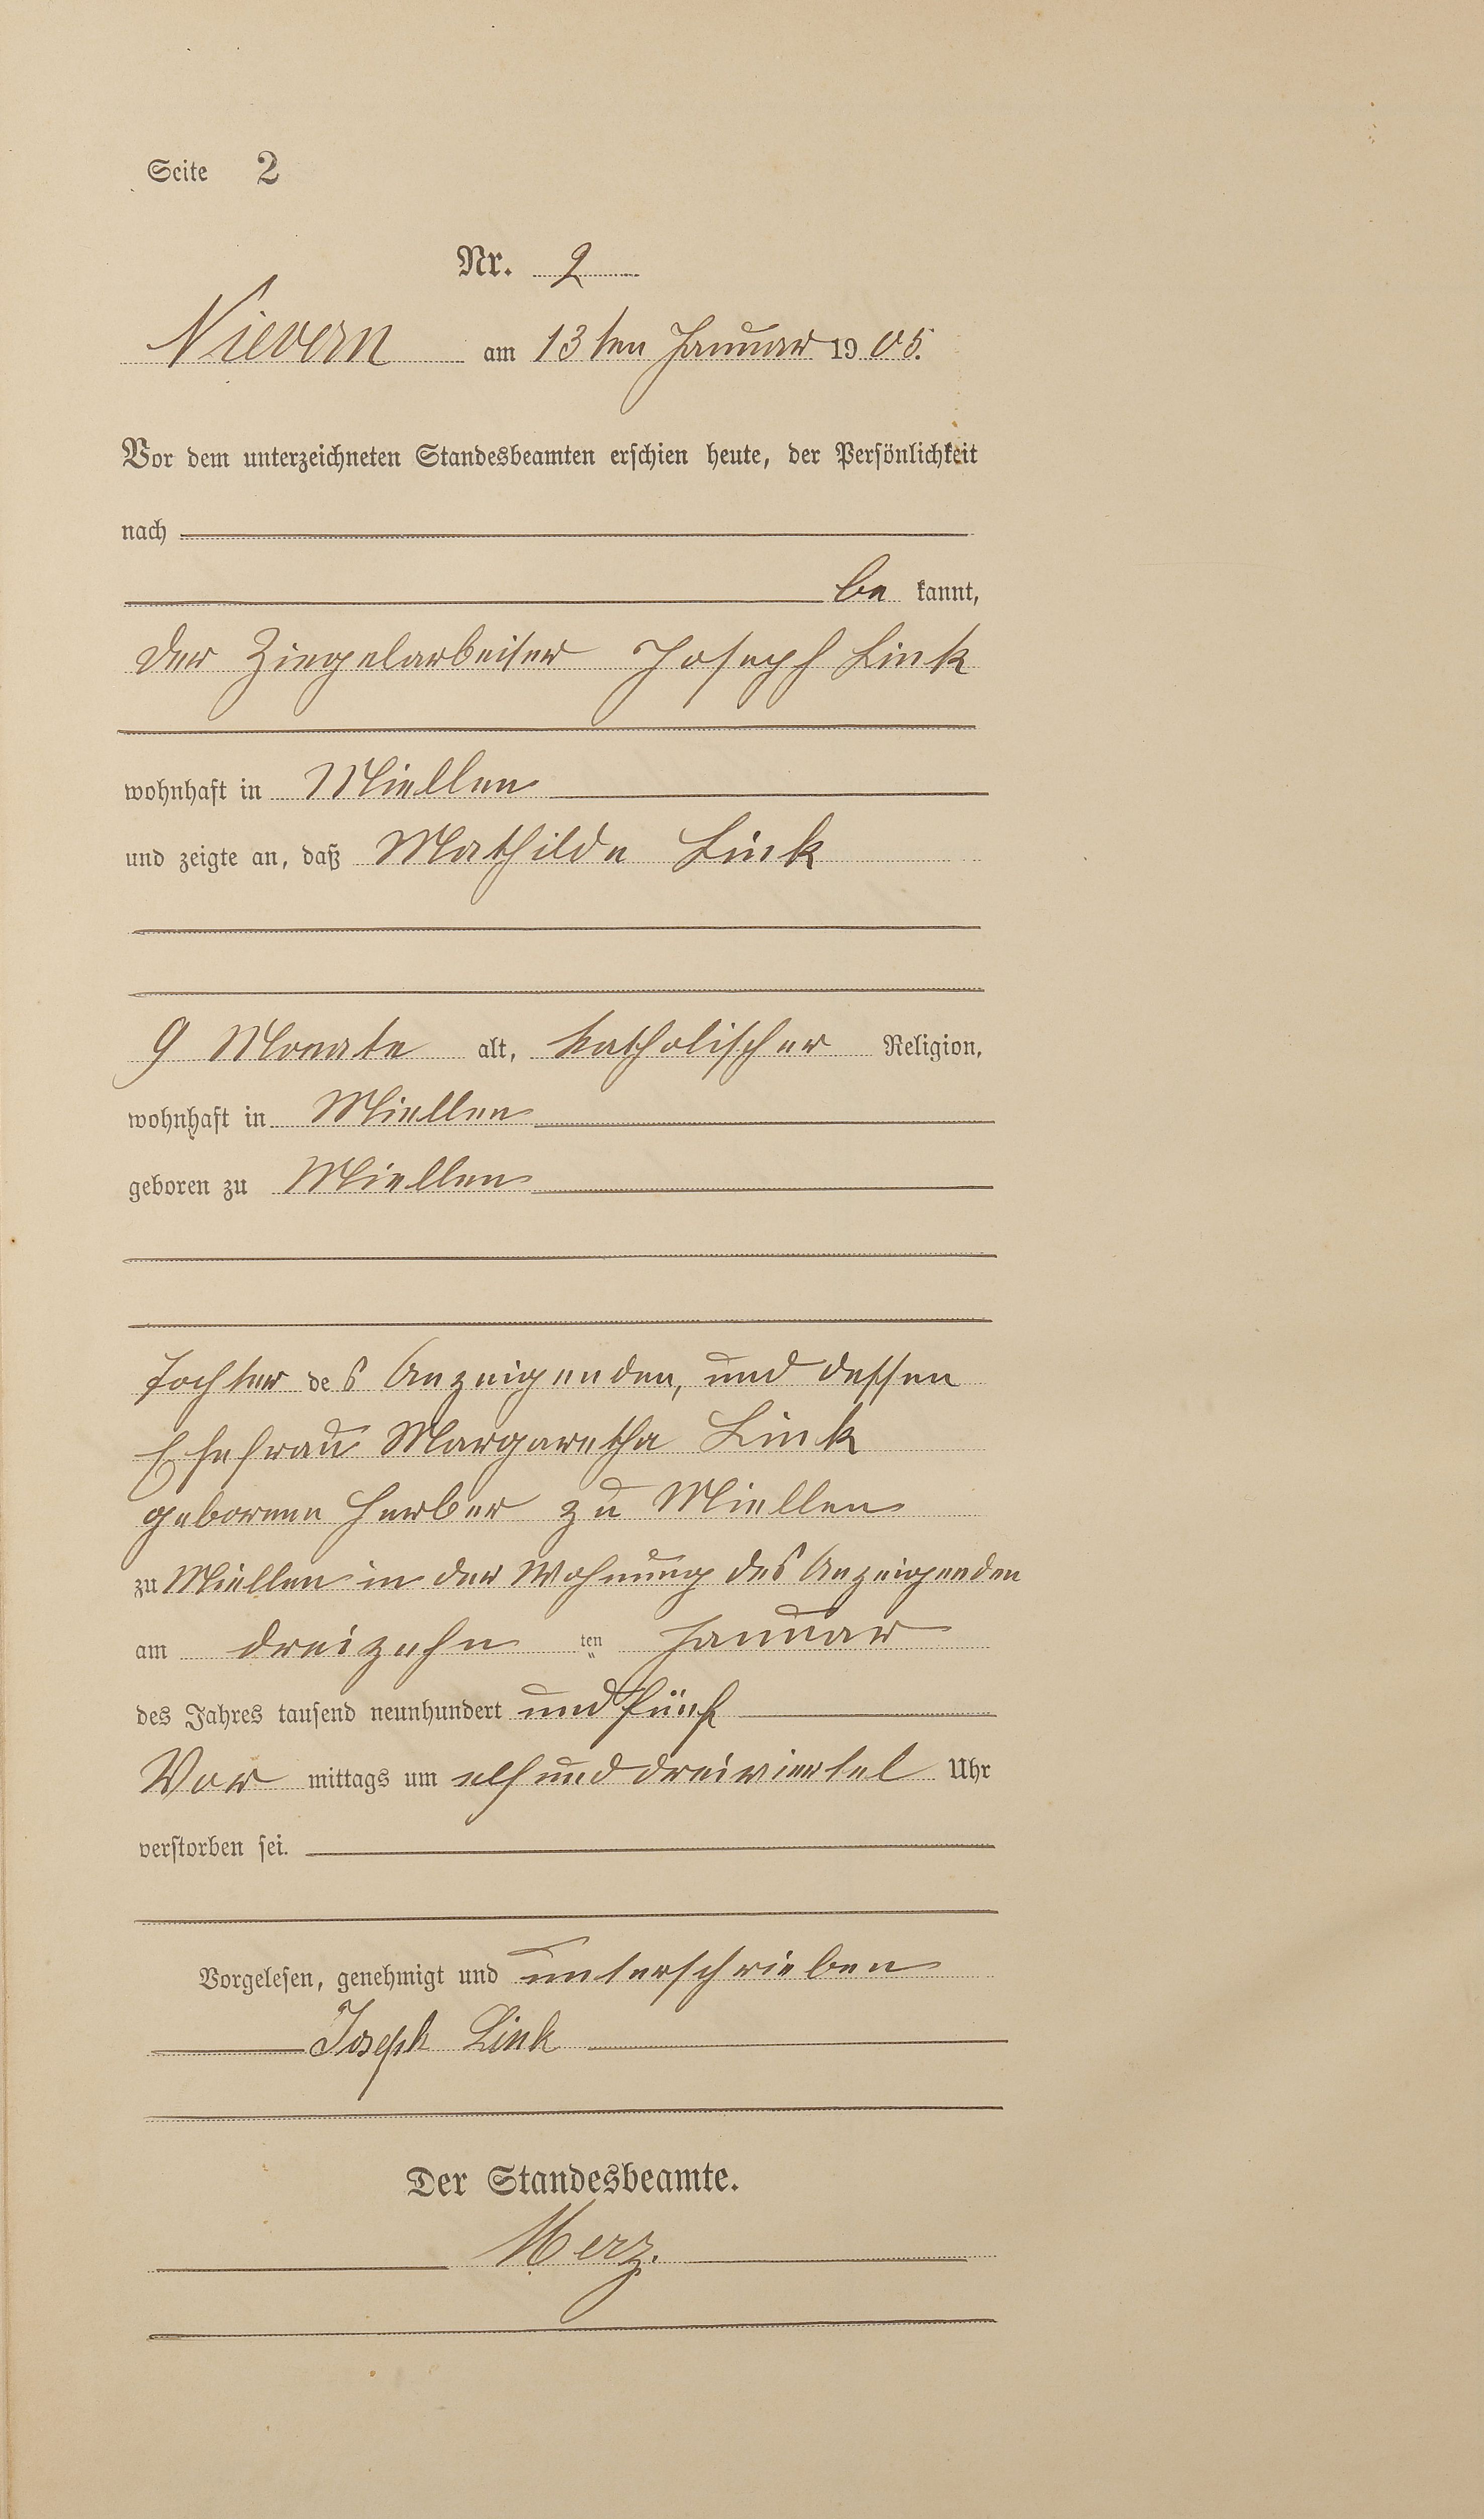 Seite 2
Nr. 2
Nievern am 13ten Januar 1905.
Vor dem unterzeichneten Standesbeamten erschien heute, der Persönlichkeit
nach
be kannt,
der Ziegelarbeiter Joseph Link
wohnhaft in Miellen
und zeigte an, daß Mathilde Link
9 Monate alt, katholischer Religion,
wohnhaft in Miellen
geboren zu Miellen
Tochter des Anzeigenden, und dessen
Ehefrau Margaretha Link
geborene Herber zu Miellen
zu Miellen in der Wohnung des Anzeigenden
am dreizehn ten Januar
des Jahres tausend neunhundert und fünf
Vor mittags um elf und dreiviertel Uhr
verstorben sei.
Vorgelesen, genehmigt und unterschrieben
Joseph Link
Der Standesbeamte.
Merz.